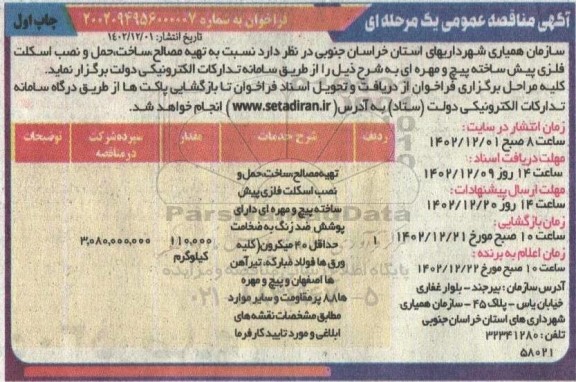 آگهی مناقصه عمومی یک مرحله ای
فراخوان به شماره ۲۰۰۲۰۹۴۹۵۶۰۰۰۰۰۷
چاپ اول
تاریخ انتشار: ۱۴۰۲/۱۲/۰۱
سازمان همیاری شهرداریهای استان خراسان جنوبی در نظر دارد نسبت به تهیه مصالح،ساخت،حمل و نصب اسکلت
فلزی پیش ساخته پیچ و مهره ای به شرح ذیل را از طریق سامانه تدارکات الکترونیکی دولت برگزار نماید.
کلیه مراحل برگزاری فراخوان از دریافت و تحویل اسناد فراخوان تا بازگشایی پاکت ها از طریق درگاه سامانه
تدارکات الکترونیکی دولت (ستاد) به آدرس( www.setadiran.ir) انجام خواهد شد.
زمان انتشار در سایت:
۸ صبح ۱۴۰۲/۱۲/۰۱
مهلت دریافت اسناد:
ساعت ۱۴ روز ۱۴۰۲/۱۲/۰۹
مهلت ارسال پیشنهادات:
ساعت ۱۴ روز ۱۴۰۲/۱۲/۲۰
زمان بازگشایی:
ساعت ۱۰ صبح مورخ ۱۴۰۲/۱۲/۲۱
زمان اعلام به برنده:
ساعت ۱۰ صبح مورخ ۱۴۰۲/۱۲/۲۲
آدرس سازمان: بیرجند - بلوار غفاری
خیابان یاس - پلاک ۴۵ - سازمان همیاری
شهرداری های استان خراسان جنوبی
تلفن: ۳۲۳۴۱۲۸۰
۵۸۰۲۱
ردیف شرح خدمات مقدار سپرده شرکت در مناقصه توضیحات
۱
تهیه مصالح،ساخت،حمل و
نصب اسکلت فلزی پیش
ساخته پیچ و مهره ای دارای
پوشش ضد زنگ به ضخامت
حداقل ۴۰ میکرون(کلیه
ورق ها فولاد مبارکه، تیرآهن
ها اصفهان و پیچ و مهره
ها۸.۸ پر مقاومت و سایر موارد
مطابق مشخصات نقشه های
ابلاغی و مورد تایید کارفرما
۱۱۰,۰۰۰
کیلوگرم
۳,۰۸۰,۰۰۰,۰۰۰
ParsNamadData